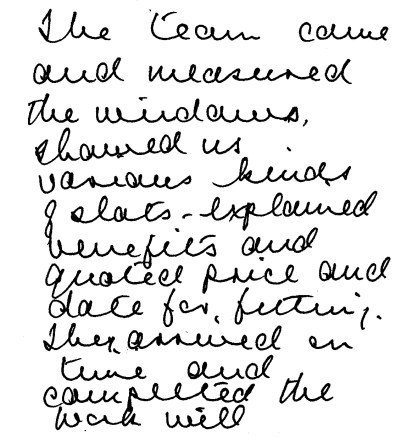 The team came
and measured
the windows,
showed us
various kinds
of slats - explained
benefits and
quoted price and
date for fitting.
They arrived on
time and
completed the
work well